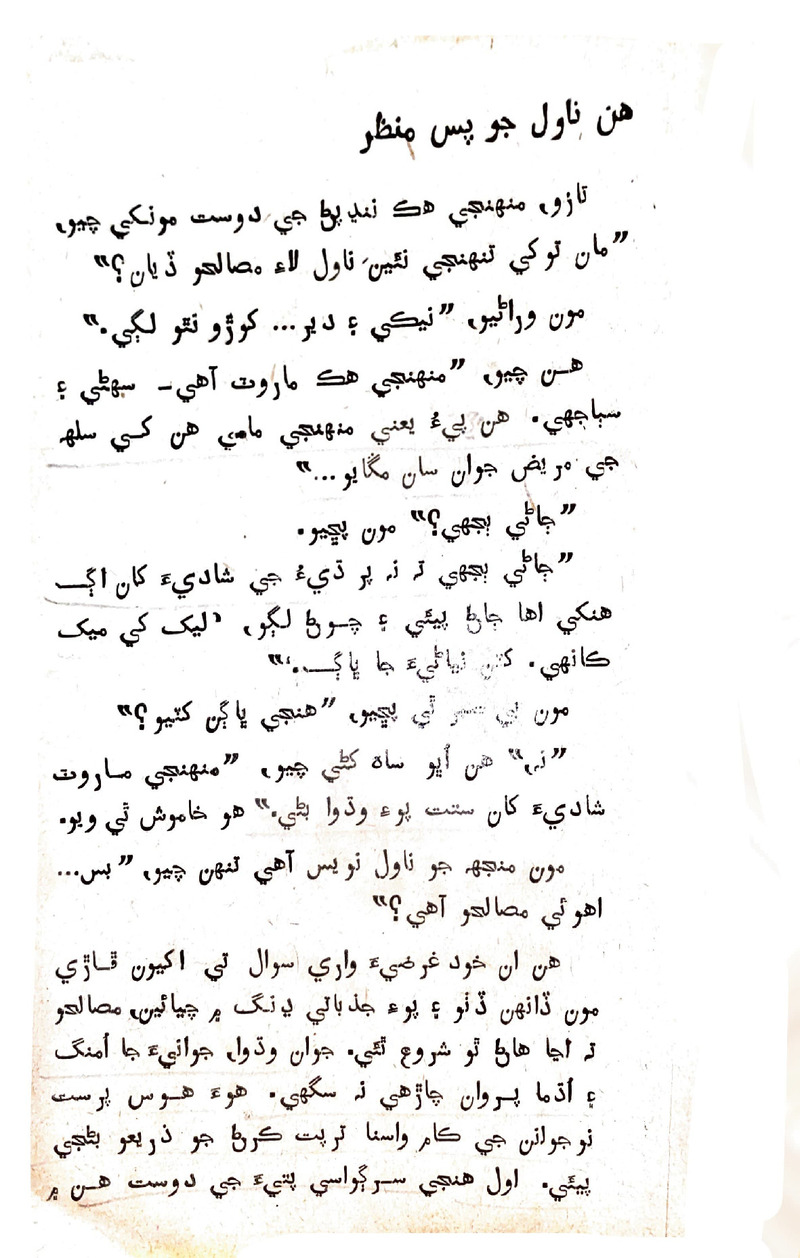 هن ناول جو پس منظر
تازو، منهنجي هڪ ننڍپڻ جي دوست مونکي چيو،
”مان توکي تنهنجي نئين ناول لاءِ مصالحو ڏيان؟“
مون وراڻيو، ”نيڪي ۽ دير... کوڙو نٿو لڳي.“
هن چيو، ”منهنجي هڪ ماروٽ آهي- سهڻي ۽
سٻاجهي. هن پيءُ يعني منهنجي مامي هن کي سلهہ
جي مريض جوان سان مڱايو...“
”ڄاڻي ٻجهي؟“ مون پڇيو.
”ڄاڻي ٻجهي تہ نہ پر ڌيءُ جي شاديءَ کان اڳ
هنکي اها ڄاڻ پيئي ۽ چوڻ لڳو، ‘ليک کي ميک
ڪانهي. نياڻيءَ جا ڀاڳ.’“
مون ٿي پڇيو، ”هنجي ڀاڳن کٽيو؟“
”نہ،“ هن اُڀو ساهه کڻي چيو، ”منهنجي ماروٽ
شاديءَ کان سترت پوءِ وڌوا بڻي.“ هو خاموش ٿي ويو.
مون منجهہ جو ناول نويس آهي تنهن چيو، ”بس...
اهوئي مصالحو آهي؟“
هن ان خود غرضيءَ واري سوال تي اکيون ڦاڙي
مون ڏانهن ڏٺو ۽ پوءِ جذباتي ڍنگ ۾ چيائين، مصالحو
تہ اڃا هاڻ ٿو شروع ٿئي. جوان وڌوا، جوانيءَ جا اُمنگ
۽ اُڌما پروان چاڙهي نہ سگهي. هوءَ هوس پرست
نوجوانن جي ڪام واسنا ترپت ڪرڻ جو ذريعو بڻجي
پيئي. اول هنجي سرڳواسي پتيءَ جي دوست هن ۾